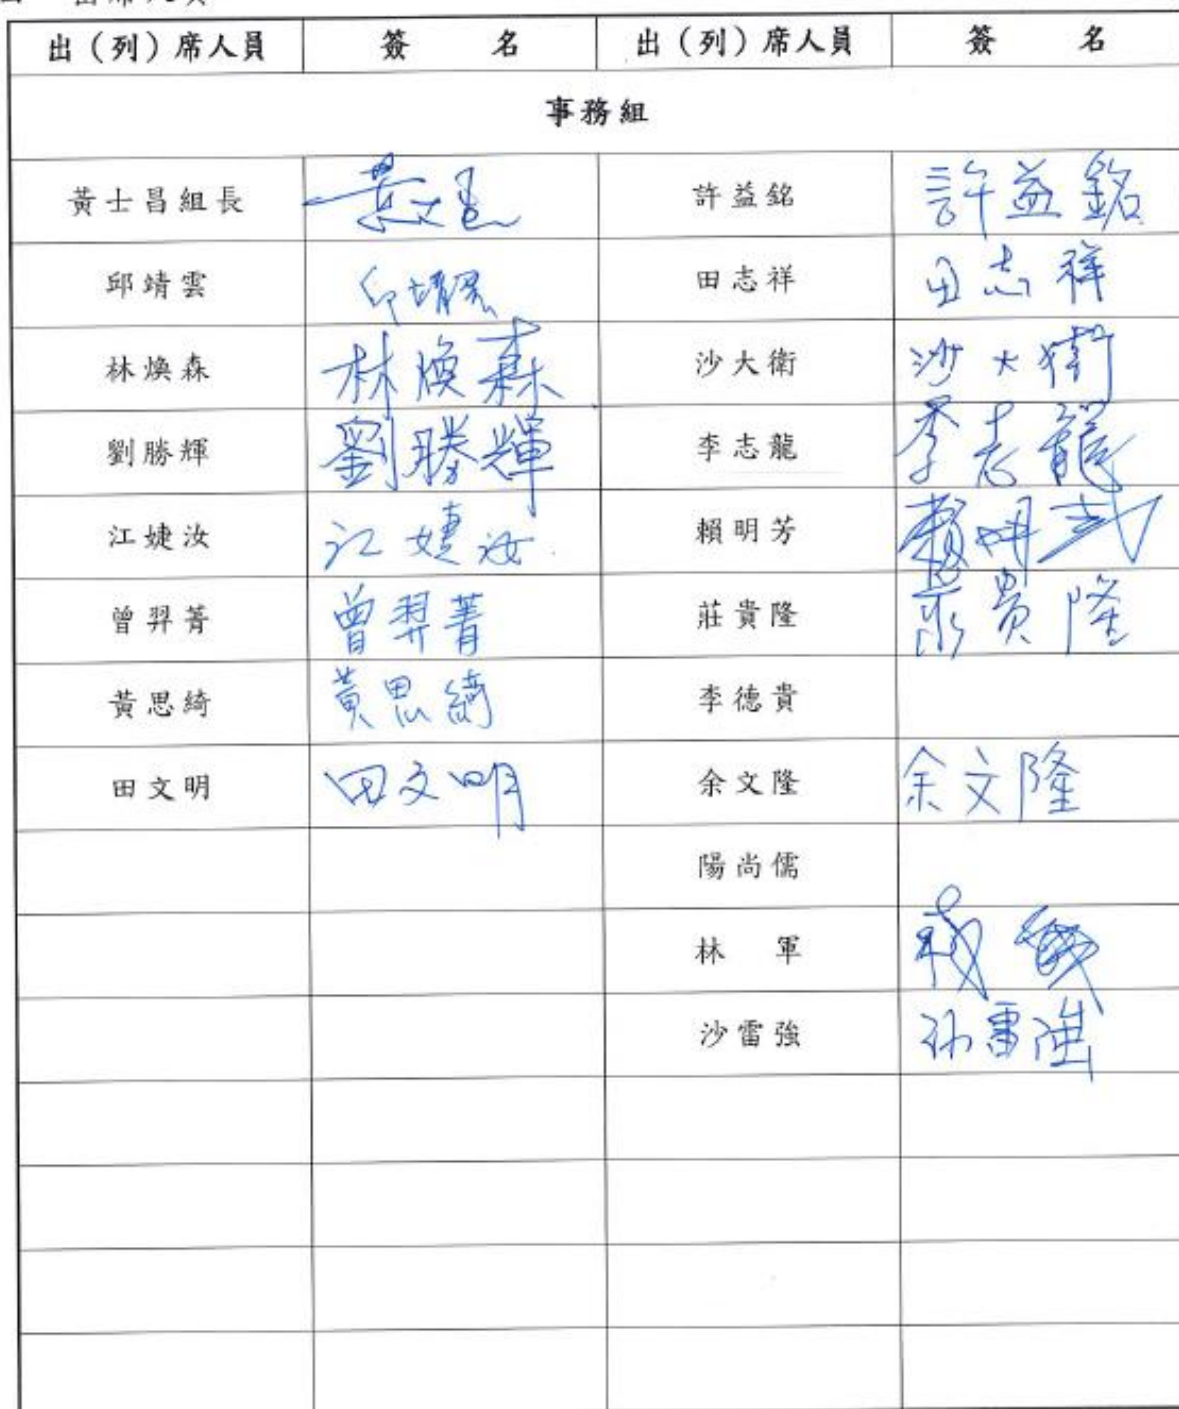 出(列)席人員 簽名 出(列)席人員 簽名
事務組
黃士昌組長 許益銘 許益銘
邱靖雲 邱靖雲 田志祥 田志祥
林煥森 林煥森 沙大衛 沙大衛
劉勝輝 劉勝輝 李志龍 李志龍
江婕汝 江婕汝 賴明芳 賴明芳
曾羿菁 曾羿菁 莊貴隆 莊貴隆
黃思綺 黃思綺 李德貴
田文明 田文明 余文隆 余文隆
陽尚儒
林軍
沙雷強 沙雷強